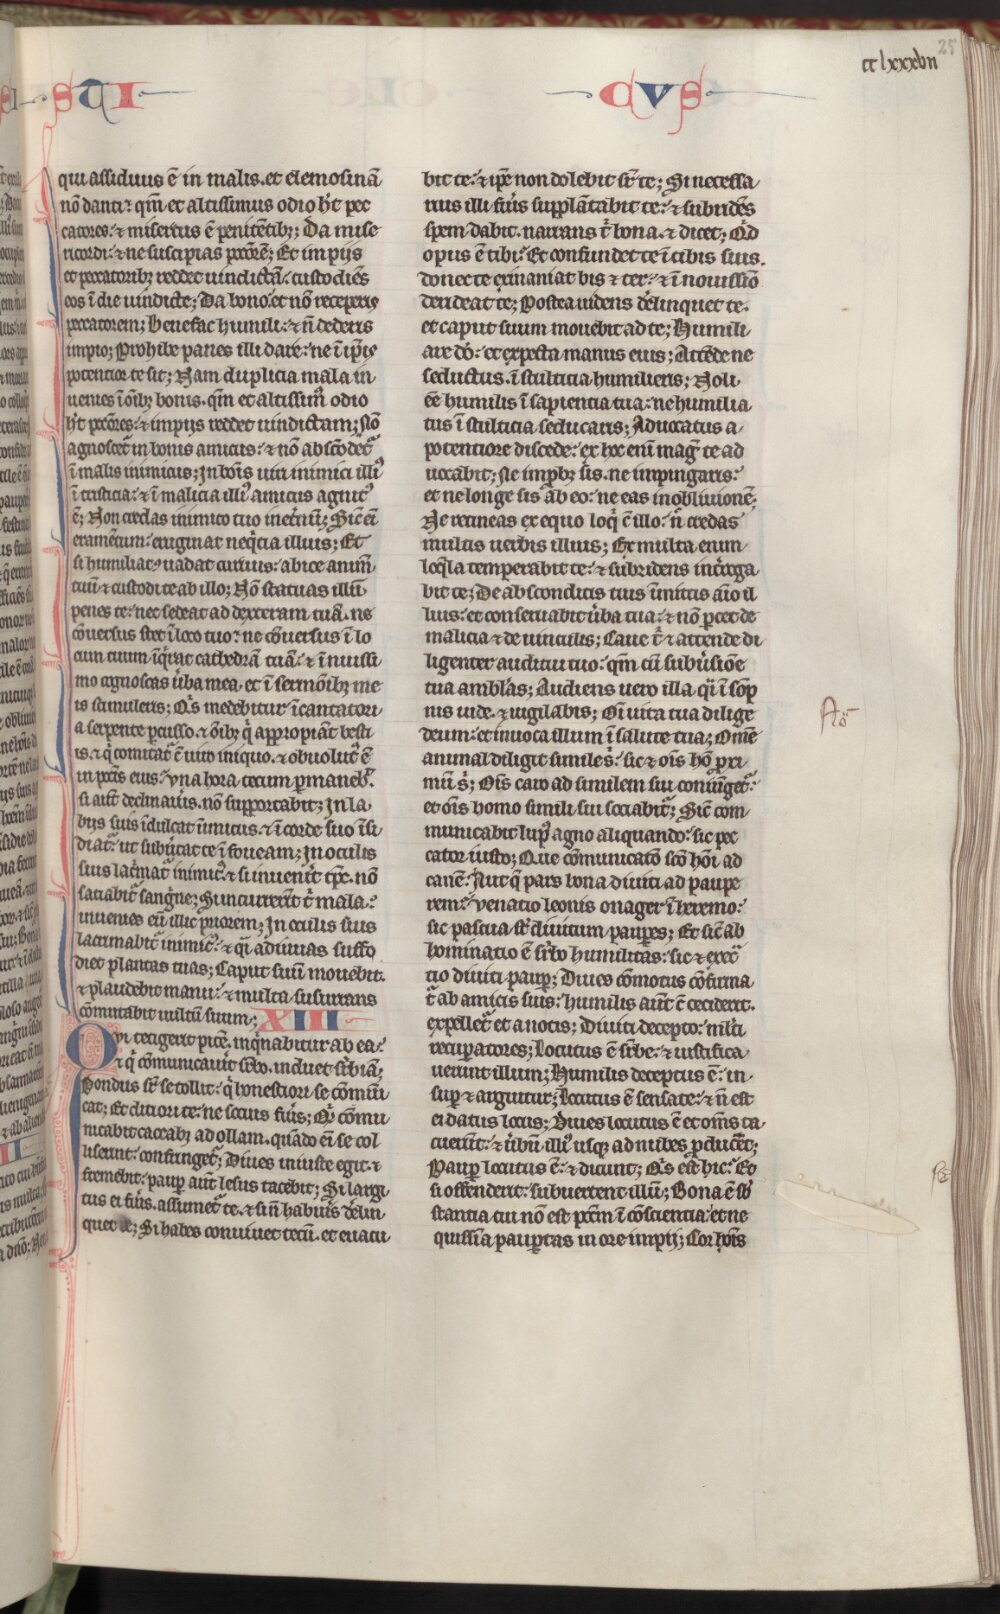 cclxxxvii
25
STI
CVS
qui assiduus ē in malis. et elemosinā
nō danti? qm̄ et altissimus odio hꝫ pec
catores. & misertus ē penitētibꝫ; Da mise
ricordi. & ne suscipias pccōrē; Et impijs
et peccatoribꝫ reddet uindictā. custodiēs
eos ī die uindicte; Da bono. et nō receperis
peccatorem; Benefac humili. & ñ dederis
impio; Prohibe panes illi dare. ne ī ipīs
potentior te sit; Nam duplicia mala in
uenies ī oībꝫ bonis. qm̄ et altissim᷒ odio
hꝫ pccōres. & impijs reddet uindictam; Nō
agnoscet᷑ in bonis amicus. & nō abscōdet᷑
ī malis inimicus; In bōis uiri inimici illi᷒
ī tristicia. & ī malicia illi᷒ amicus agnit᷒
ē; Non credas inimico tuo inet̄nū; Sic̄ eī
eramētum. eruginat neqͥcia illius; Et
si humiliat᷒ uadat curuus. abice animū
tuū & custodi te ab illo; Nō statuas illū
penes te. nec sedeat ad dexteram tuā. ne
cōuersus stet ī loco tuo. ne cōuersus ī lo
cum tuum. īqͥrat cathedrā tuā. & ī nouissi
mo agnoscas ūba mea. et ī sermōibꝫ me
is stimuleris; Qͥs medebitur īcantatori
a serpente ꝑcusso. & oībꝫ qͥ appropiāt besti
is. & qͥ comitat᷑ c̄ uiro iniquo. & obuolut᷒ ē
in pctīs eius. Vna hora tecum ꝑmanebͭ.
si aut̄ declinaūis. nō supportabit; In la
bijs suis īdulcat īimicus. & ī corde suo īsi
diat᷑. ut subūtat te ī foueam; In oculis
suis lac̄mat᷑ inimic᷒. & si inuenīt tp̄c. nō
satiabit᷑ sangͥne; Si incurrerīt t̄ mala.
inuenies eū illic priorem; In oculis suis
lacrimabit᷑ inimic᷒. & qͥ adiuuās suffo
diet plantas tuas; Caput suū mouebit.
& plaudebit manu. & multa susurrans
cōmutabit uultū suum; XIII
Qui tetigerit picē. inqͥnabitur ab ea.
& qͥ cōmunicauīt supbo. induet supbiā;
Pondus sup se tollit. qͥ honestiori se cōmūi
cat; Et ditiori te. ne socius fūis; Qͥd cōmu
nicabit cacabꝫ ad ollam. quādo eī se col
liserint. confringet᷑; Diues iniuste egit. &
fremebit. pauꝑ aut̄ lesus tacebit; Si largi
tus ei fūis. assumet te. & si ñ habūis dēlin
quet te; Si habes conuiuet tecū. et euacu
bit te. & ip̄e non dolebit sup te; Si necessa
rius illi fūis supplātabit te. & subridēs
spem dabit. narrans t̄ bona. & dicet; Qͥd
opus ē tibi. Et confundet te ī cibis suis.
donec te exinaniat bis & ter. & ī nouissīo
derideat te; Postea uidens dēlinquet te.
et caput suum mouebit ad te; Humili
are dō. et expecta manus eius; Attēde ne
seductus. ī stulticia humilieris; Noli
eē humilis ī sapientia tua. ne humilia
tus ī stulticia seducaris; Aduocatus a
potentiore discede. ex hoc enī magͥ te ad
uocabit; Ne improbꝫ sis. ne impingaris.
et ne longe sis ab eo. ne eas in obliuionē;
Ne retineas ex equo loqͥ c̄ illo. ñ credas
multis uerbis illius; Ex multa enim
loqͣla temptabit te. & subridens int̄roga
bit te; De absconditis tuis īmitis aīo il
lius. et conseruabit ūba tua. & nō ꝑcet de
malicia & de uinculis; Caue t̄ & attende di
ligenter auditui tuo. qm̄ cū subūsiōe
tua amblas; Audiens uero illa. qͣi ī sōp
nis uide. & uigilabis; Oī uita tua dilige
deum. et inuoca illum ī salute tua; Omē
animal diligit simile sͥ. sic & oīs hō pxi
mū sͥ; Oīs caro ad similem sui coniūget᷑.
et oīs homo simili sui sociabit᷑; Sic̄ com
municabit lup᷒ agno aliquando. sic pec
cator iusto; Que cōmunicatō scō hōi ad
canē. Aut qͥ pars bona diuiti ad paupe
rem. Venatio leonis onager ī heremo.
sic pascua st̄ diuitum pauꝑes; Et sic̄ ab
hominatio ē supbo humilitas. sic & execͣ
tio diuiti pauꝑ; Diues cōmotus cōfirma
t᷑ ab amicis suis. humilis aut̄ c̄ ceciderit.
expellet᷑ et a notis; Diuiti decepto. mͣlti
recuꝑatores; Locutus ē supbe. & iustifica
uerunt illum; Humilis deceptus ē. in
suꝑ & arguitur; Locutus ē sensate. & ñ est
ei datus locus; Diues locutus ē et omīs ta
cuerūt. & ūbū illi᷒ usqꝫ ad nubes ꝑducēt;
Pauꝑ locutus ē. & dicunt; Qͥs est hic. Et
si offenderit. subuertent illū; Bona ē sub
stantia cui nō est pctm̄ ī cōscientia. et ne
quissīa pauꝑtas in ore impij; Cor hōis